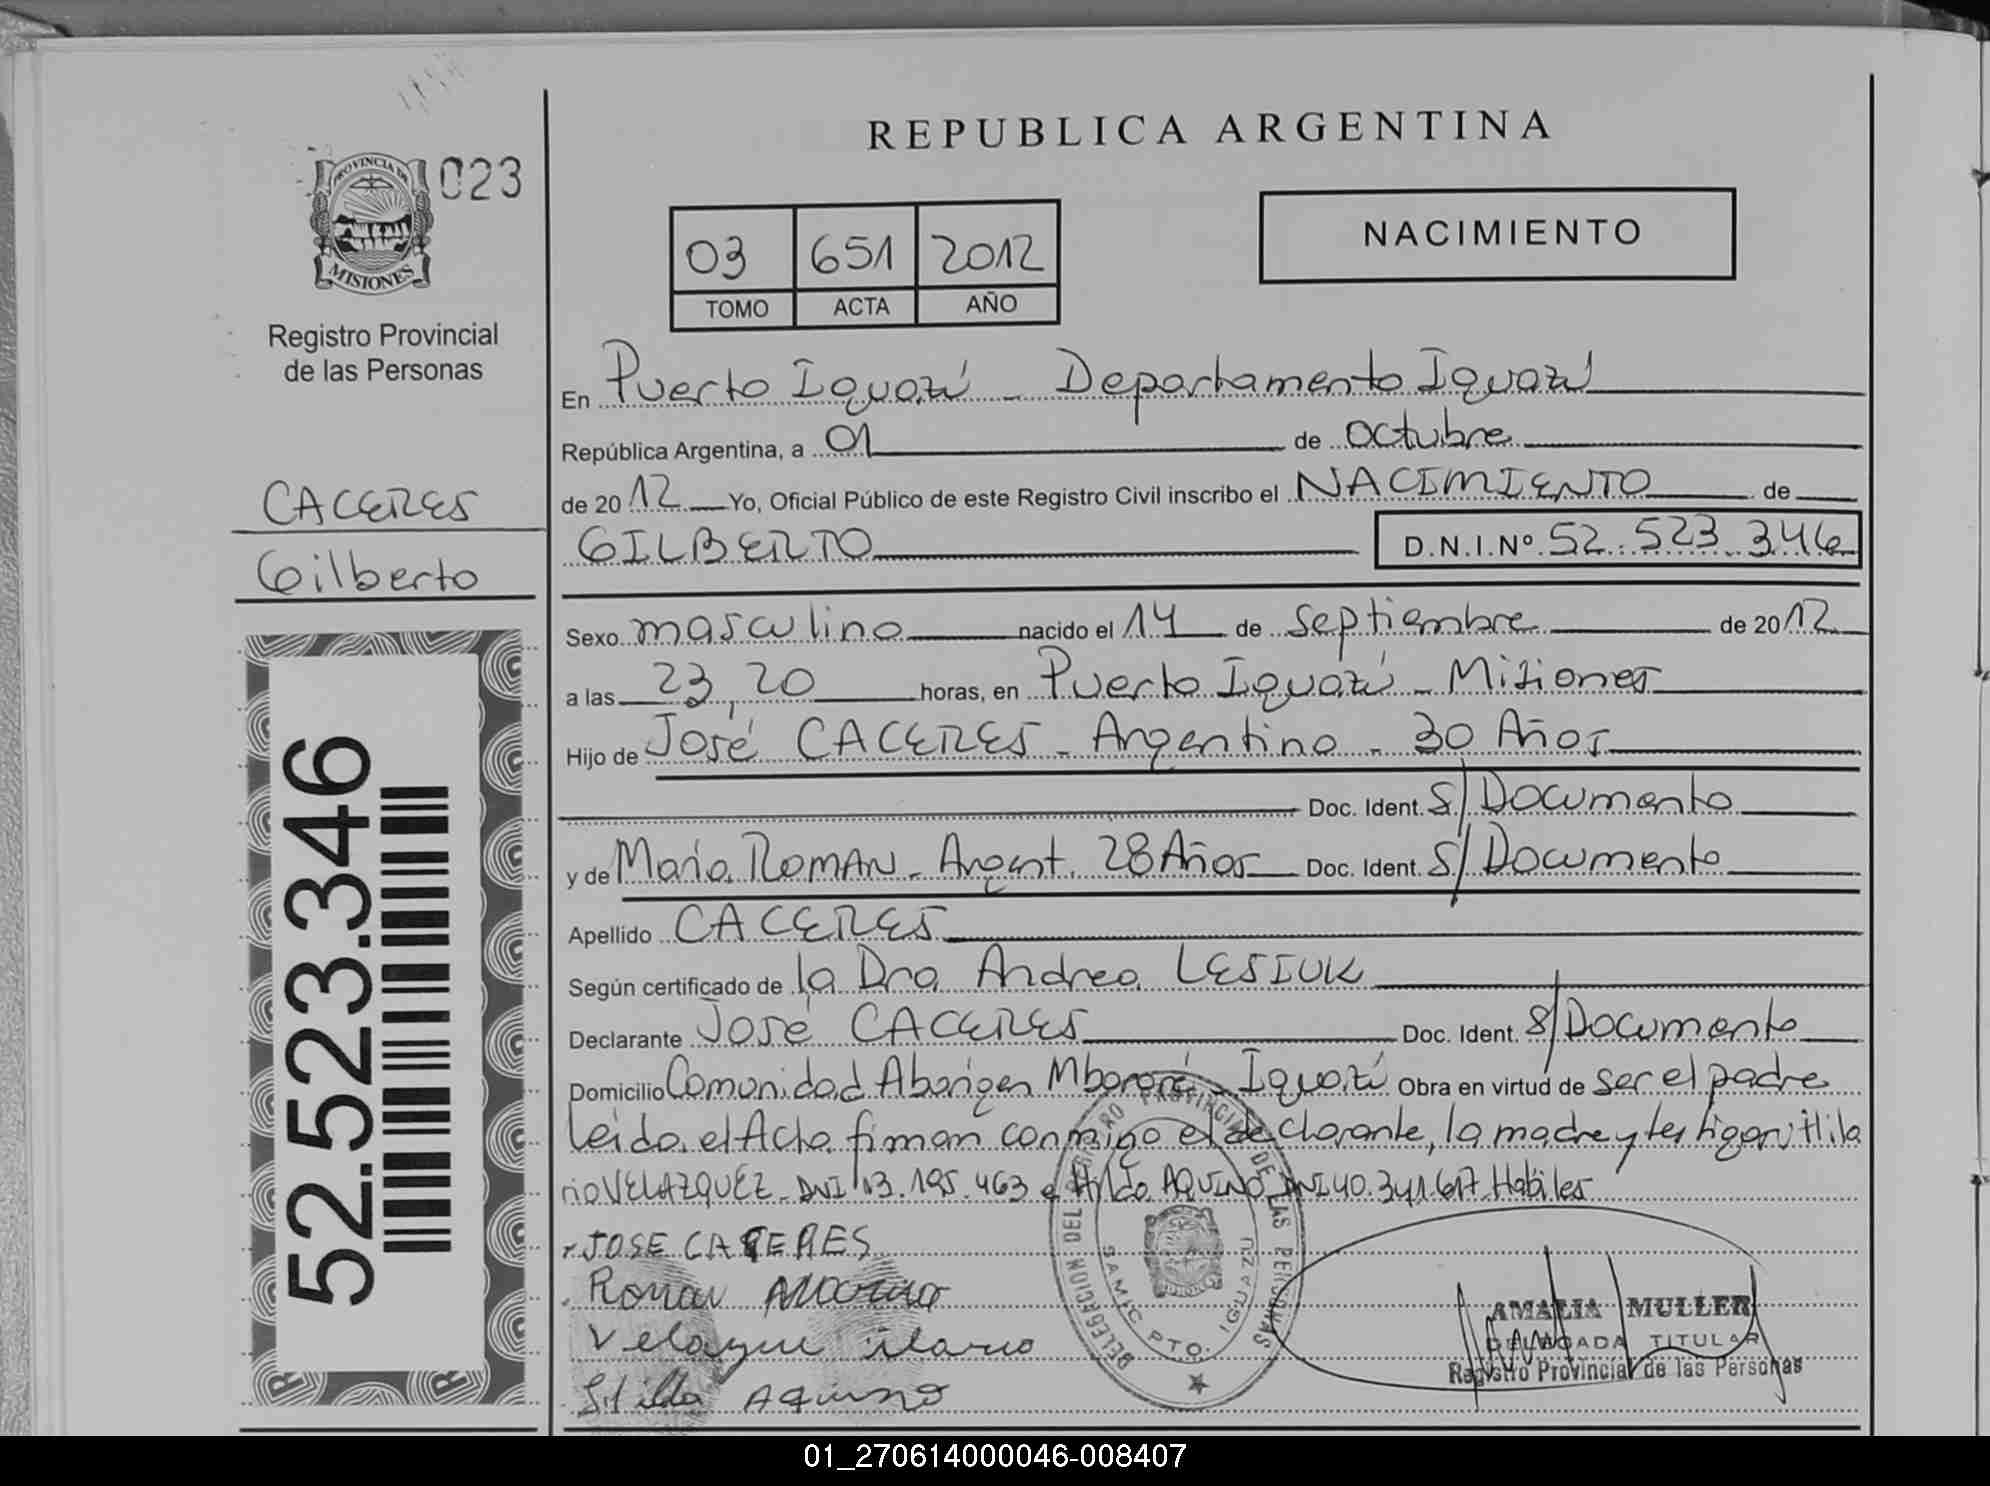 REPUBLICA ARGENTINA
PROVINCIA DE
MISIONES
023
Registro Provincial
de las Personas
CACERES
Gilberto
52.523.346
03 651 2012
TOMO ACTA AÑO
NACIMIENTO
En Puerto Iguazú - Departamento Iguazú
República Argentina, a 01 de octubre
de 2012 Yo, Oficial Público de este Registro Civil inscribo el NACIMIENTO de
GILBERTO D.N.I.Nº 52.523.346
Sexo masculino nacido el 14 de septiembre de 2012
a las 23,20 horas, en Puerto Iguazú - Misiones
Hijo de José CACERES - Argentino - 30 Años
Doc. Ident. S/Documento
y de María ROMAN - Argent. 28 Años Doc. Ident. S/Documento
Apellido CACERES
Según certificado de la Dra Andrea LESIUK
Declarante José CACERES Doc. Ident. S/Documento
Domicilio Comunidad Aborigen Mbororé - Iguazú Obra en virtud de ser el padre
Leída el Acta firman conmigo el declarante, la madre y testigos: Hila
rio VELAZQUEZ - DNI 13.195.463 e Hilda AQUINO DNI 40.341.617 Hábiles
JOSE CACERES
Roman
Velazque ilario
Aquino
DELEGACION DEL REGISTRO PROVINCIAL DE LAS PERSONAS
SAMIC PTO. IGUAZU
AMALIA MULLER
DELEGADA TITULAR
Registro Provincial de las Personas
01_270614000046-008407